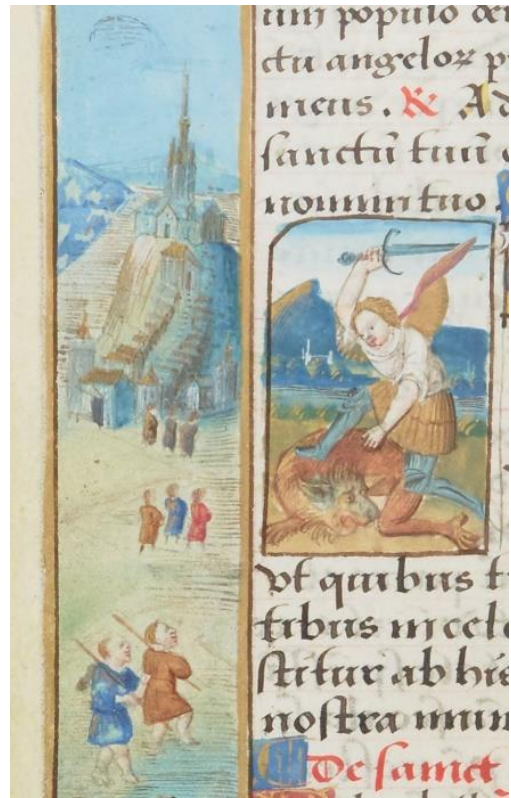 populo
ctu angeloꝝ p
meus. ℟ A
sanctū tuū
nomini tuo
vt quibus t
tibus in cel
stitur ab his
nostra mun
De sanct